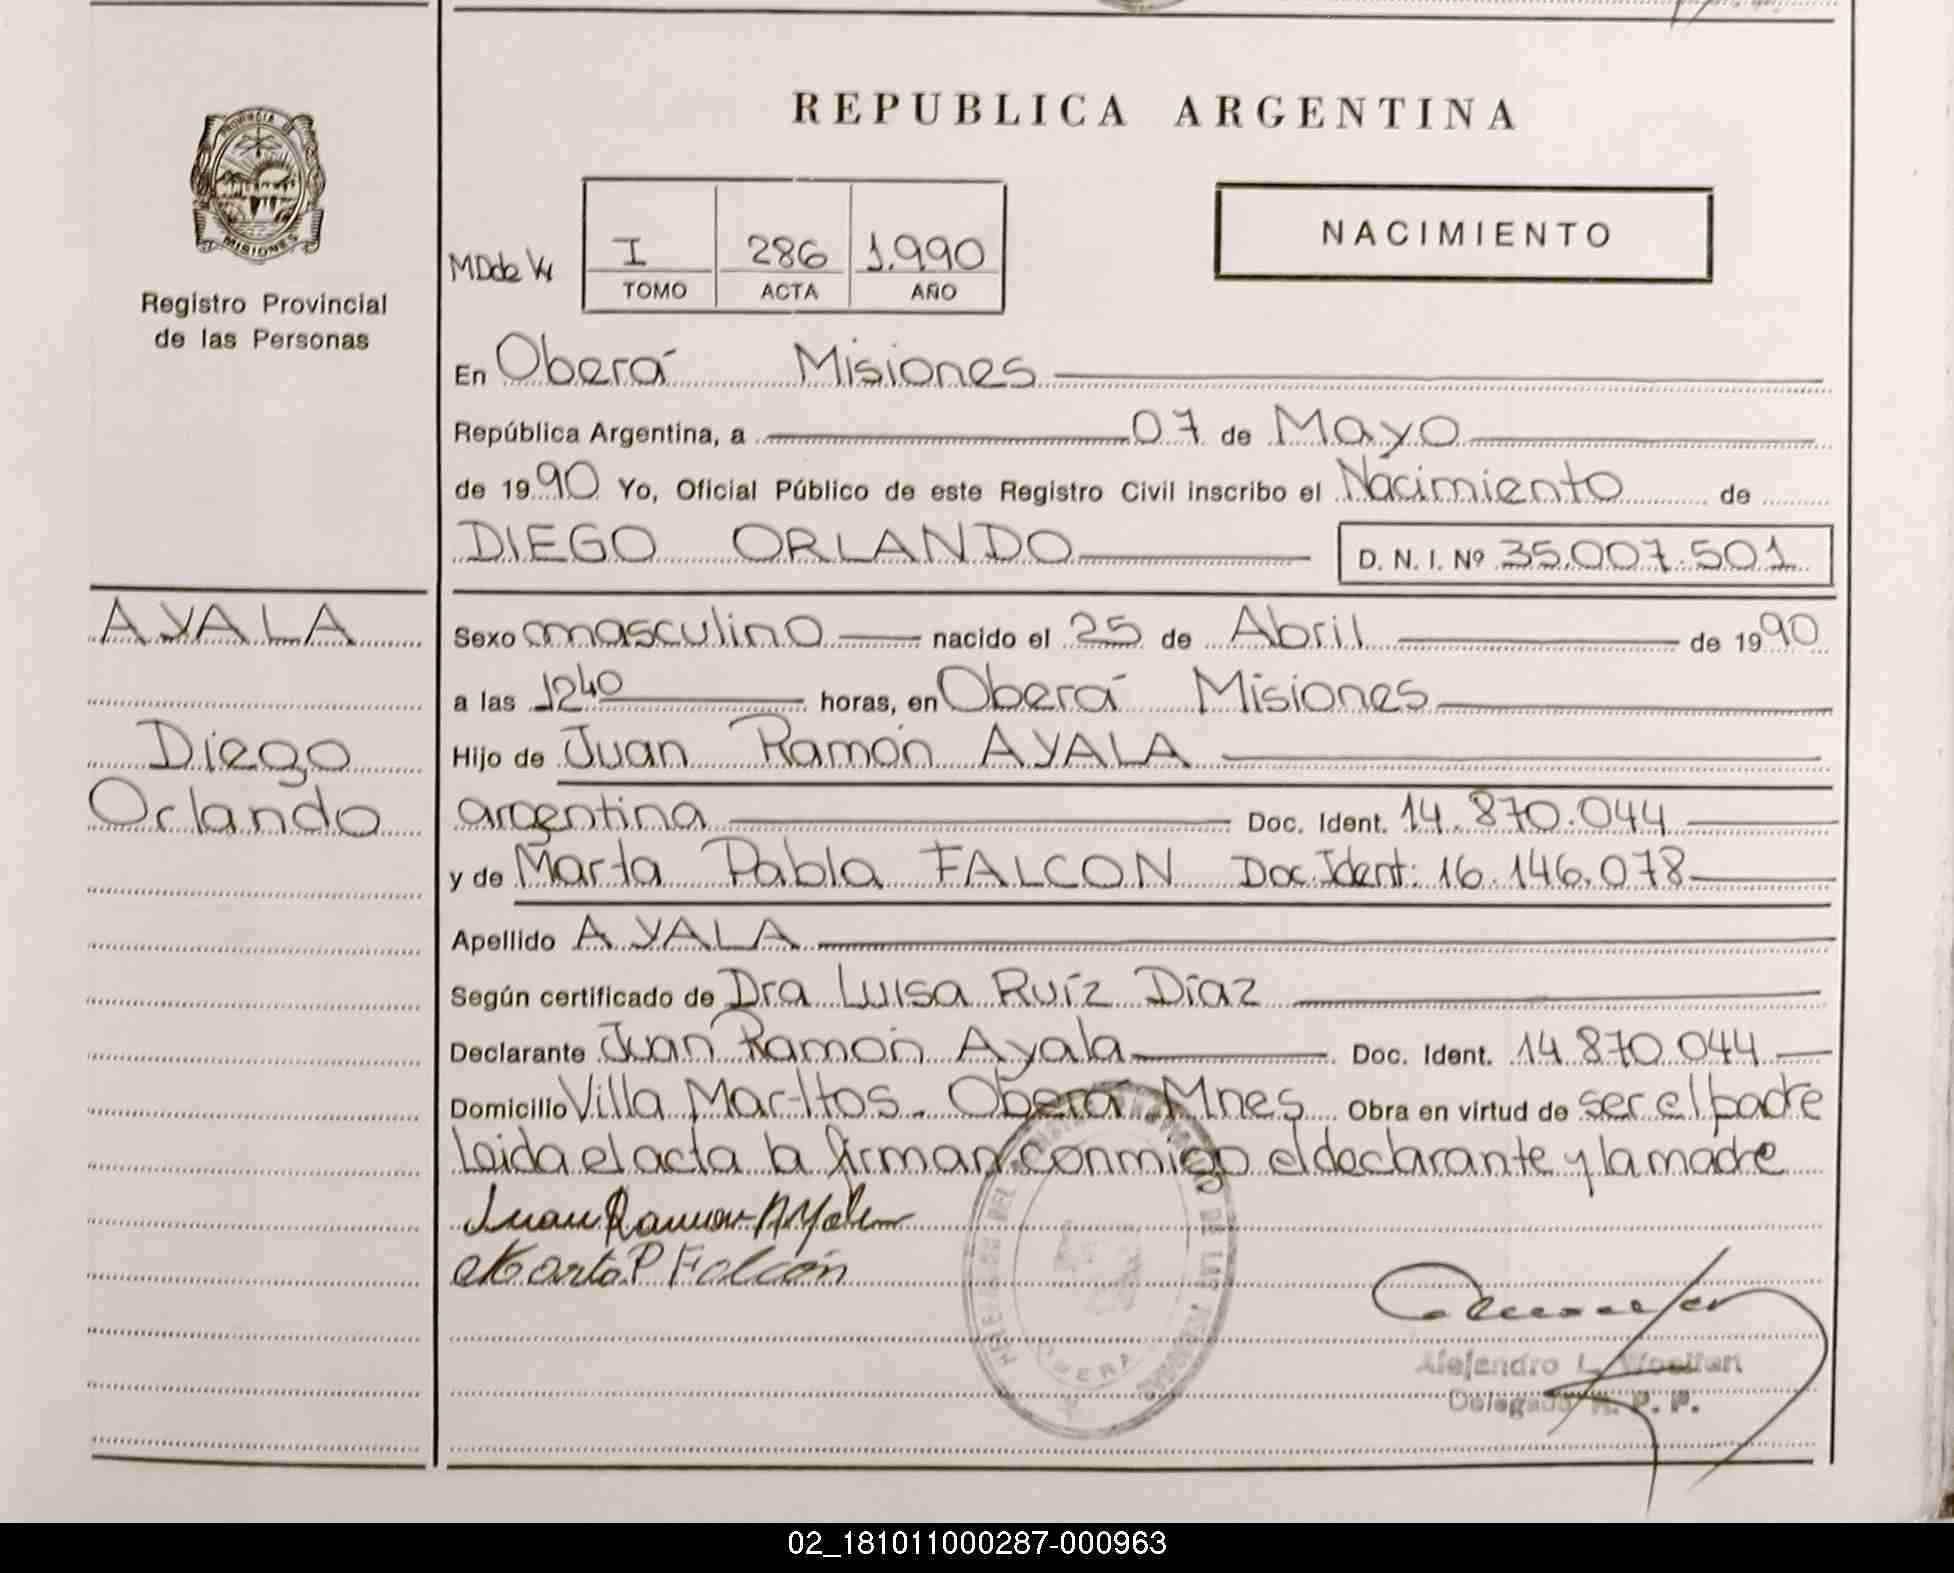 REPUBLICA ARGENTINA
PROVINCIA DE
MISIONES
Registro Provincial
de las Personas
I 286 1.990
TOMO ACTA AÑO
NACIMIENTO
En Oberá Misiones
República Argentina, a 07 de Mayo
de 1990 Yo, Oficial Público de este Registro Civil inscribo el Nacimiento de
DIEGO ORLANDO D. N. I. Nº 35.007.501
AYALA
Diego
Orlando
Sexo masculino nacido el 25 de Abril de 1990
a las 1240 horas, en Oberá Misiones
Hijo de Juan Ramón AYALA
argentina Doc. Ident. 14.870.044
y de Marta Pabla FALCON Doc. Ident: 16.146.078
Apellido AYALA
Según certificado de Dra Luisa Ruíz Díaz
Declarante Juan Ramón Ayala Doc. Ident. 14 870 044
Domicilio Villa Mar-Itos. Oberá Mnes Obra en virtud de ser el padre
Leida el acta la firman conmigo el declarante y la madre
Juan Ramon Ayala
Marta P Falcón
DEL DE LAS
OBERA
Alejandro L.
Delegado R. P. P.
02_181011000287-000963